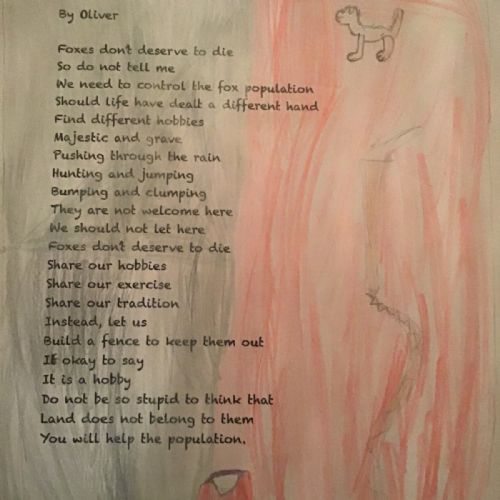 By Oliver
Foxes don't deserve to die
So do not tell me
We need to control the fox population
Should life have dealt a different hand
Find different hobbies
Majestic and grave
Pushing through the rain
Hunting and jumping
Bumping and clumping
They are not welcome here
We should not let here
Foxes don't deserve to die
Share our hobbies
Share our exercise
Share our tradition
Instead, let us
Build a fence to keep them out
If okay to say
It is a hobby
Do not be so stupid to think that
Land does not belong to them
You will help the population.